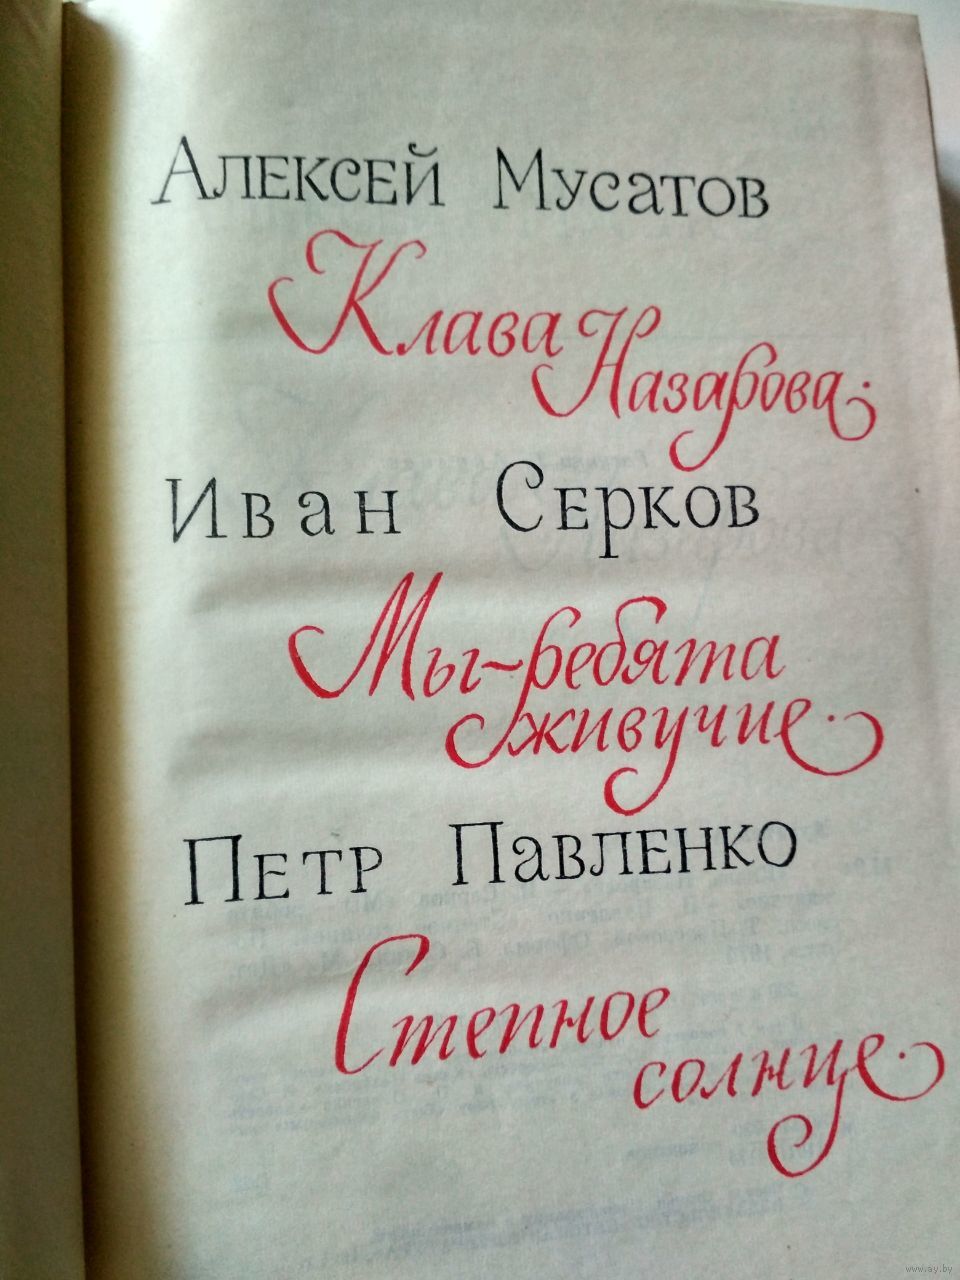 Алексей Мусатов
Клава Назарова
Иван Серков
Мы-ребята
живучие
Петр Павленко
Степное
солнце
www.ay.by